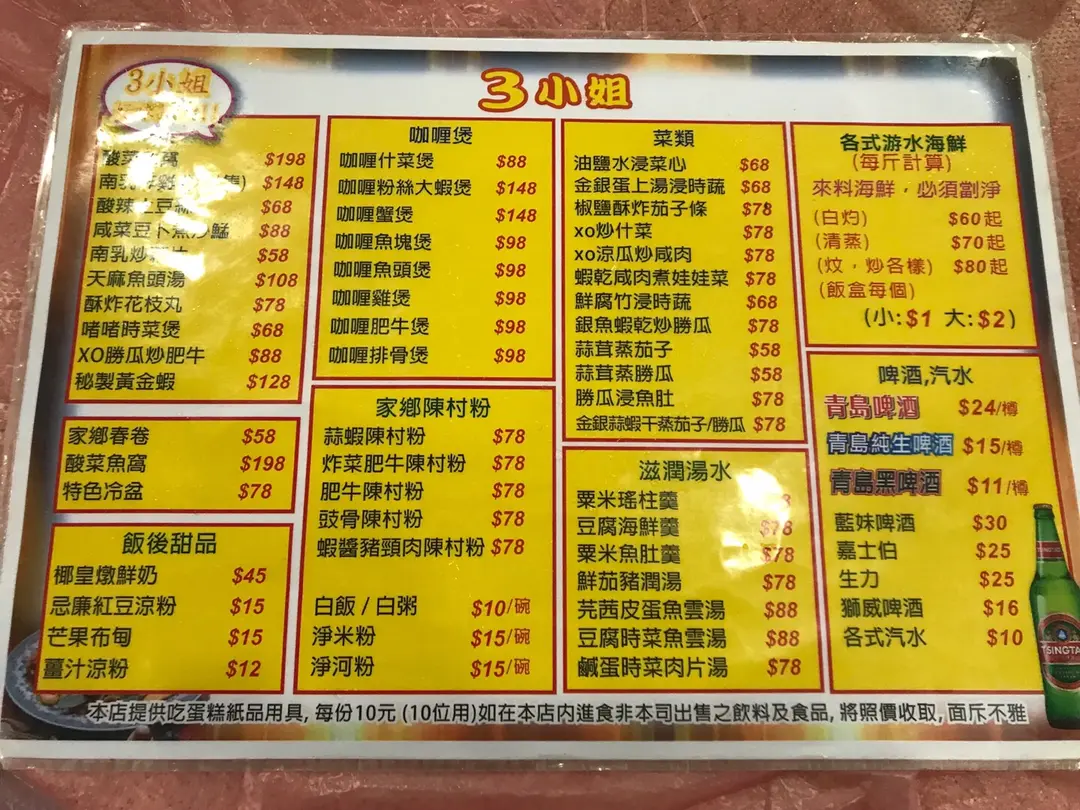 3小姐
3小姐
酸菜 $198
南乳 $148
酸辣土豆絲 $68
咸菜豆卜煮沙鯭 $88
南乳炒 $58
天麻魚頭湯 $108
酥炸花枝丸 $78
啫啫時菜煲 $68
XO勝瓜炒肥牛 $88
秘製黃金蝦 $128
家鄉春卷 $58
酸菜魚窩 $198
特色冷盆 $78
飯後甜品
椰皇燉鮮奶 $45
忌廉紅豆涼粉 $15
芒果布甸 $15
薑汁涼粉 $12
咖喱煲
咖喱什菜煲 $88
咖喱粉絲大蝦煲 $148
咖喱蟹煲 $148
咖喱魚塊煲 $98
咖喱魚頭煲 $98
咖喱雞煲 $98
咖喱肥牛煲 $98
咖喱排骨煲 $98
家鄉陳村粉
蒜蝦陳村粉 $78
炸菜肥牛陳村粉 $78
肥牛陳村粉 $78
豉骨陳村粉 $78
蝦醬豬頸肉陳村粉 $78
白飯 / 白粥 $10/碗
淨米粉 $15/碗
淨河粉 $15/碗
菜類
油鹽水浸菜心 $68
金銀蛋上湯浸時蔬 $68
椒鹽酥炸茄子條 $78
xo炒什菜 $78
xo涼瓜炒咸肉 $78
蝦乾咸肉煮娃娃菜 $78
鮮腐竹浸時蔬 $68
銀魚蝦乾炒勝瓜 $78
蒜茸蒸茄子 $58
蒜茸蒸勝瓜 $58
勝瓜浸魚肚 $78
金銀蒜蝦干蒸茄子/勝瓜 $78
滋潤湯水
粟米瑤柱羹
豆腐海鮮羹 $78
粟米魚肚羹 $78
鮮茄豬潤湯 $78
芫茜皮蛋魚雲湯 $88
豆腐時菜魚雲湯 $88
鹹蛋時菜肉片湯 $78
各式游水海鮮
(每斤計算)
來料海鮮，必須劏淨
(白灼) $60起
(清蒸) $70起
(炆，炒各樣) $80起
(飯盒每個)
(小:$1 大:$2)
啤酒,汽水
青島啤酒 $24/樽
青島純生啤酒 $15/樽
青島黑啤酒 $11/樽
藍妹啤酒 $30
嘉士伯 $25
生力 $25
獅威啤酒 $16
各式汽水 $10
TSINGTA
本店提供吃蛋糕紙品用具, 每份10元 (10位用)如在本店內進食非本司出售之飲料及食品, 將照價收取, 面斥不雅